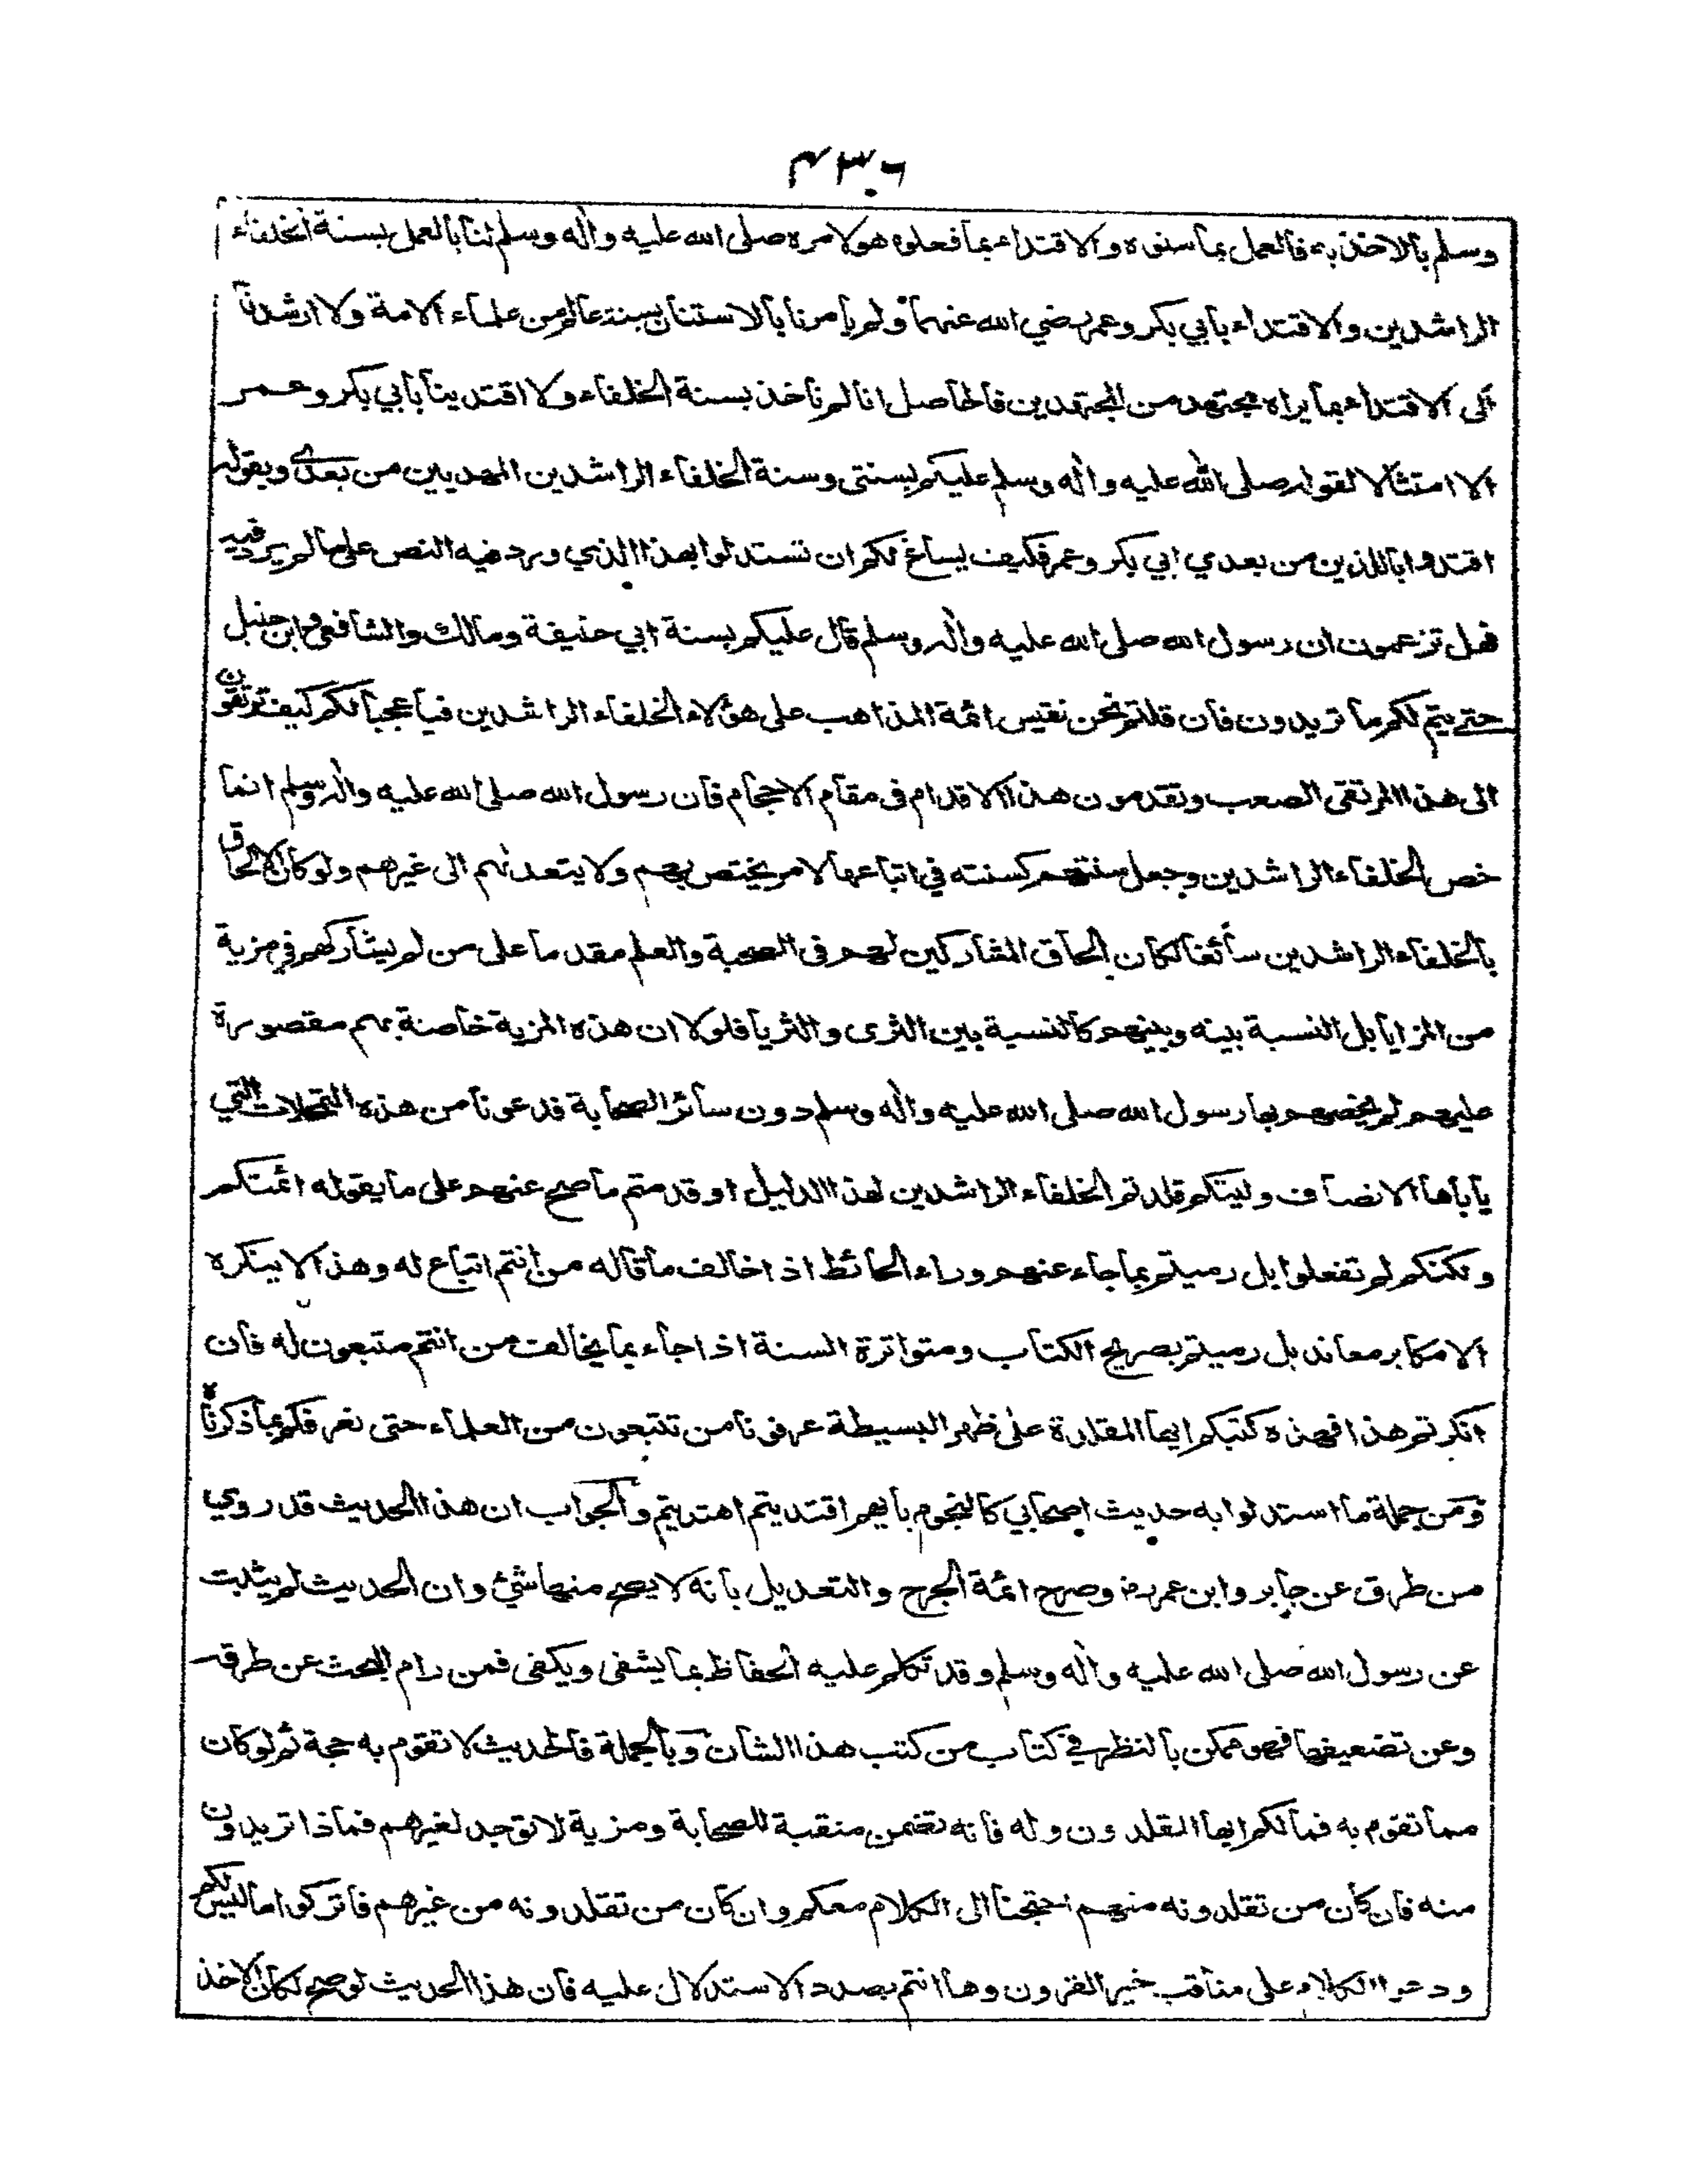 ٤٣٠٦
وسلم بالاخذ به فالعمل بما سنوه والاقتداء بما فعلوه هو لامره صلى الله عليه واله وسلم لنا بالعمل بسنة الخلفاء
الراشدين والاقتداء بابي بكر وعمر رضي الله عنهما ولم يامرنا بالاستنان بسنة عالم من علماء الامة ولا ارشدنا
الى الاقتداء بما يراه مجتهد من المجتهدين فالحاصل انا لم ناخذ بسنة الخلفاء ولا اقتدينا بابي بكر وعمر
الا امتثالا لقوله صلى الله عليه واله وسلم عليكم بسنتى وسنة الخلفاء الراشدين المهديين من بعدى وبقوله
اقتدوا باللذين من بعدي ابي بكر وعمر فكيف يساغ لكم ان تستدلوا بهذا الذي ورد فيه النص على ما لم يرد فيه
فهل تزعمون ان رسول الله صلى الله عليه واله وسلم قال عليكم بسنة ابي حنيفة ومالك والشافعي وابن حنبل
حتى يتم لكم ما تريدون فان قلتم نحن نقيس ائمة المذاهب على هؤلاء الخلفاء الراشدين فيا عجبا لكم كيف ترتقون
الى هذا المرتقى الصعب وتقدمون هذا الاقدام فى مقام الاحجام فان رسول الله صلى الله عليه واله وسلم انما
خص الخلفاء الراشدين وجعل سنتهم كسنته في اتباعها لامر يختص بهم ولا يتعداهم الى غيرهم ولو كان الالحاق
بالخلفاء الراشدين سائغا لكان الحاق المشاركين لهم فى الصحبة والعلم مقدما على من لم يشاركهم في مزية
من المزايا بل النسبة بينه وبينهم كالنسبة بين الثرى والثريا فلولا ان هذه المزية خاصة بهم مقصورة
عليهم لم يخصهم بها رسول الله صلى الله عليه واله وسلم دون سائر الصحابة فدعونا من هذه التمحلات التي
ياباها الانصاف وليتكم قلدتم الخلفاء الراشدين لهذا الدليل او قدمتم ما صح عنهم على ما يقوله ائمتكم
ولكنكم لم تفعلوا بل رميتم بما جاء عنهم وراء الحائط اذا خالف ما قاله من انتم اتباع له وهذا لا ينكره
الا مكابر معاند بل رميتم بصريح الكتاب ومتواترة السنة اذا جاء بما يخالف من انتم متبعون له فان
انكرتم هذا فهذه كتبكم ايها المقلدة على ظهر البسيطة عرفونا من تتبعون من العلماء حتى نعرفكم بما ذكرناه
ومن جملة ما استدلوا به حديث اصحابي كالنجوم بايهم اقتديتم اهتديتم والجواب ان هذا الحديث قد روي
من طرق عن جابر وابن عمر رض وصرح ائمة الجرح والتعديل بانه لا يصح منها شئ وان الحديث لم يثبت
عن رسول الله صلى الله عليه واله وسلم وقد تكلم عليه الحفاظ بما يشفى ويكفى فمن رام البحث عن طرقه
وعن تضعيفها فهو ممكن بالنظر في كتاب من كتب هذا الشان وبالجملة فالحديث لا تقوم به حجة ثم لو كان
مما تقوم به فما لكم ايها المقلدون وله فانه تضمن منقبة للصحابة ومزية لا توجد لغيرهم فماذا تريدون
منه فان كان من تقلدونه منهم احتجنا الى الكلام معكم وان كان من تقلدونه من غيرهم فاتركوا ما ليس لكم
ودعوا الكلام على مناقب خير القرون وها انتم بصدد الاستدلال عليه فان هذا الحديث لو صح لكان الاخذ